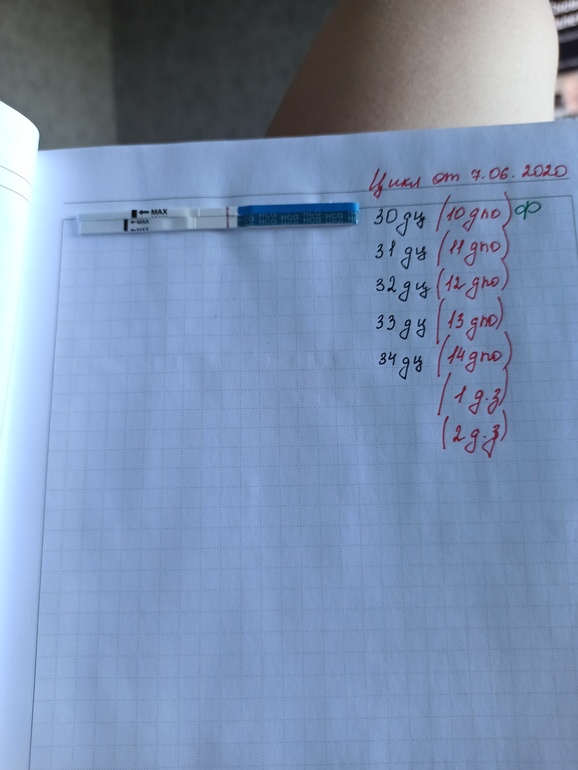 Цикл от 7.06.2020
MAX
MAX
HCG HCG HCG HCG HCG
30 дц (10 дпо) ф
31 дц (11 дпо)
32 дц (12 дпо)
33 дц (13 дпо)
34 дц (14 дпо)
(1 д.з)
(2 д.з)